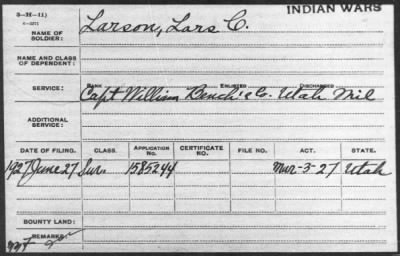 3-31-11)
INDIAN WARS
NAME OF SOLDIER: Larson, Lars C.
NAME AND CLASS OF DEPENDENT:
SERVICE: RANK ENLISTED DISCHARGED
Capt William Bench's Co. Utah Mil
ADDITIONAL SERVICE:
DATE OF FILING. CLASS. APPLICATION NO. CERTIFICATE NO. FILE NO. ACT. STATE.
1927 June 27 Sur. 1585244 Mar-3-27 Utah
BOUNTY LAND:
REMARKS: